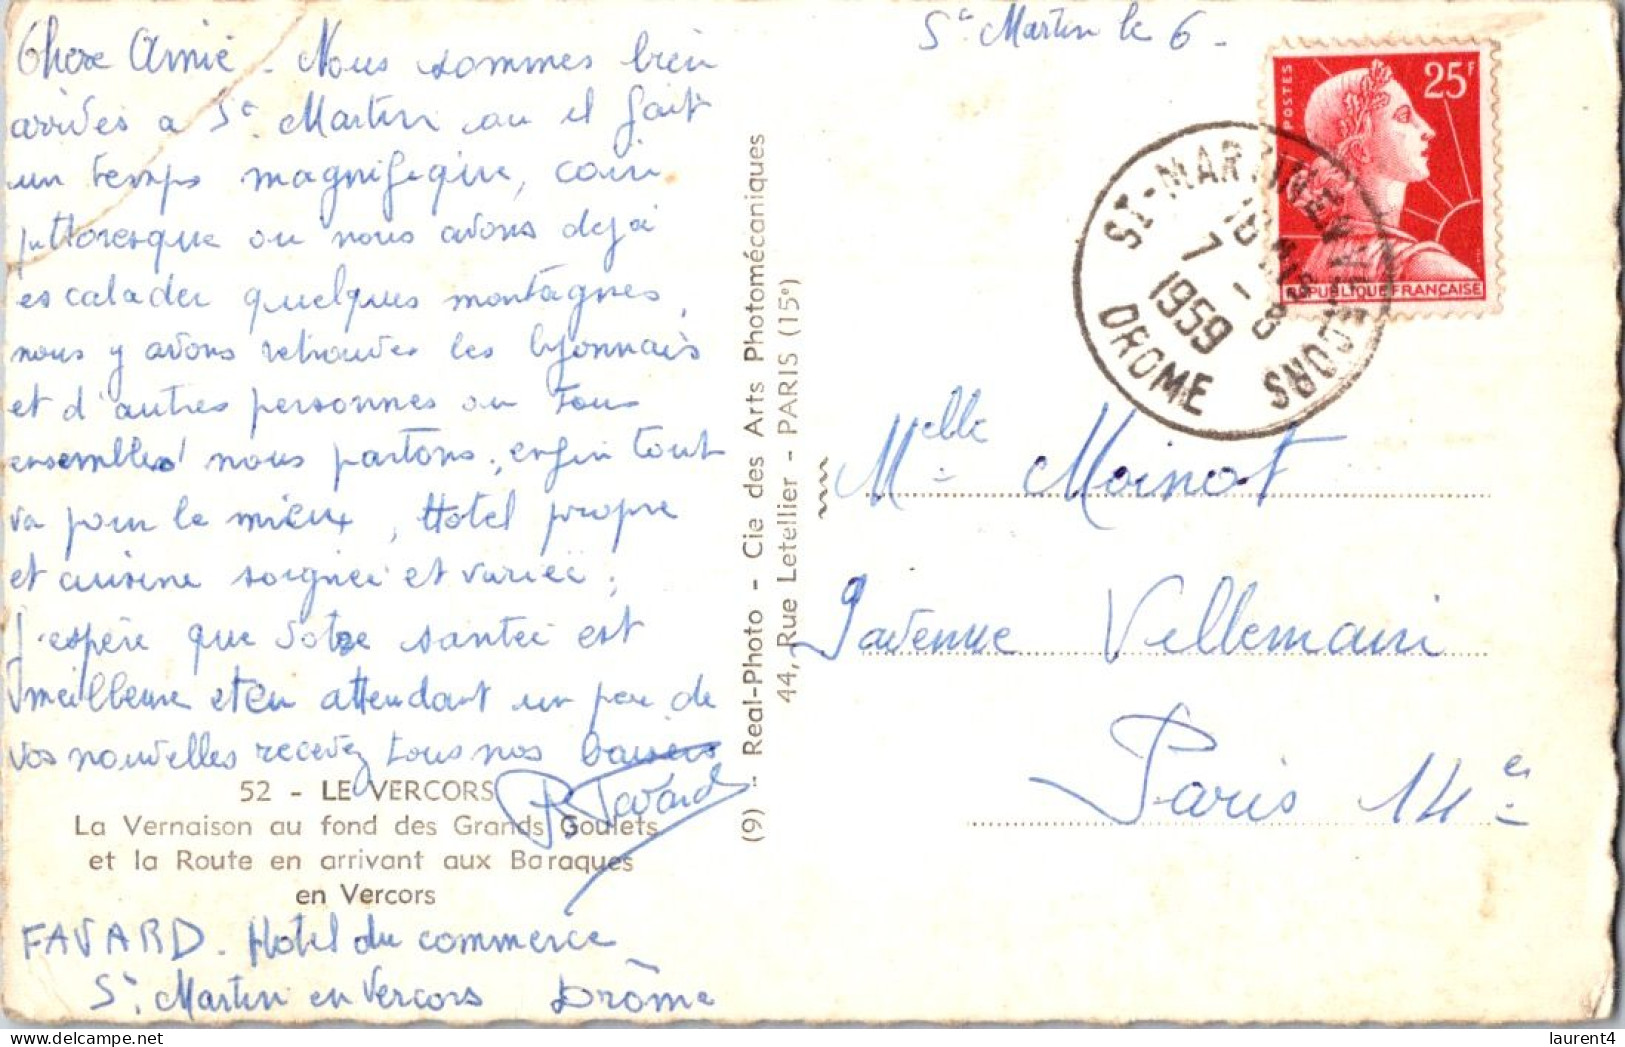 St Martin le 6 -
Chere Amie - Nous sommes bien
arrivés a St. Martin ou il fait
un temps magnifique, coin
pittoresque ou nous avons dejà
escalader quelques montagnes,
nous y avons retrouvés les lyonnais
et d'autres personnes ou tous
ensembles nous partons, enfin tout
va pour le mieux, Hotel propre
et cuisine soignée et variée,
J'espère que votre santée est
meilleure et en attendant un peu de
vos nouvelles recevez tous nos baisers
Favard
52 - LE VERCORS
La Vernaison au fond des Grands Goulets
et la Route en arrivant aux Baraques
en Vercors
FAVARD - Hotel du commerce
St. Martin en Vercors Drôme
(9) - Real-Photo - Cie des Arts Photomécaniques
44, Rue Letellier - PARIS (15e)
POSTES
25F
REPUBLIQUE FRANÇAISE
ST-MARTIN-EN-VERCORS
18
7 - 8
1959
DROME
Melle Moinot
9 avenue Villemain
Paris 14es
laurent4